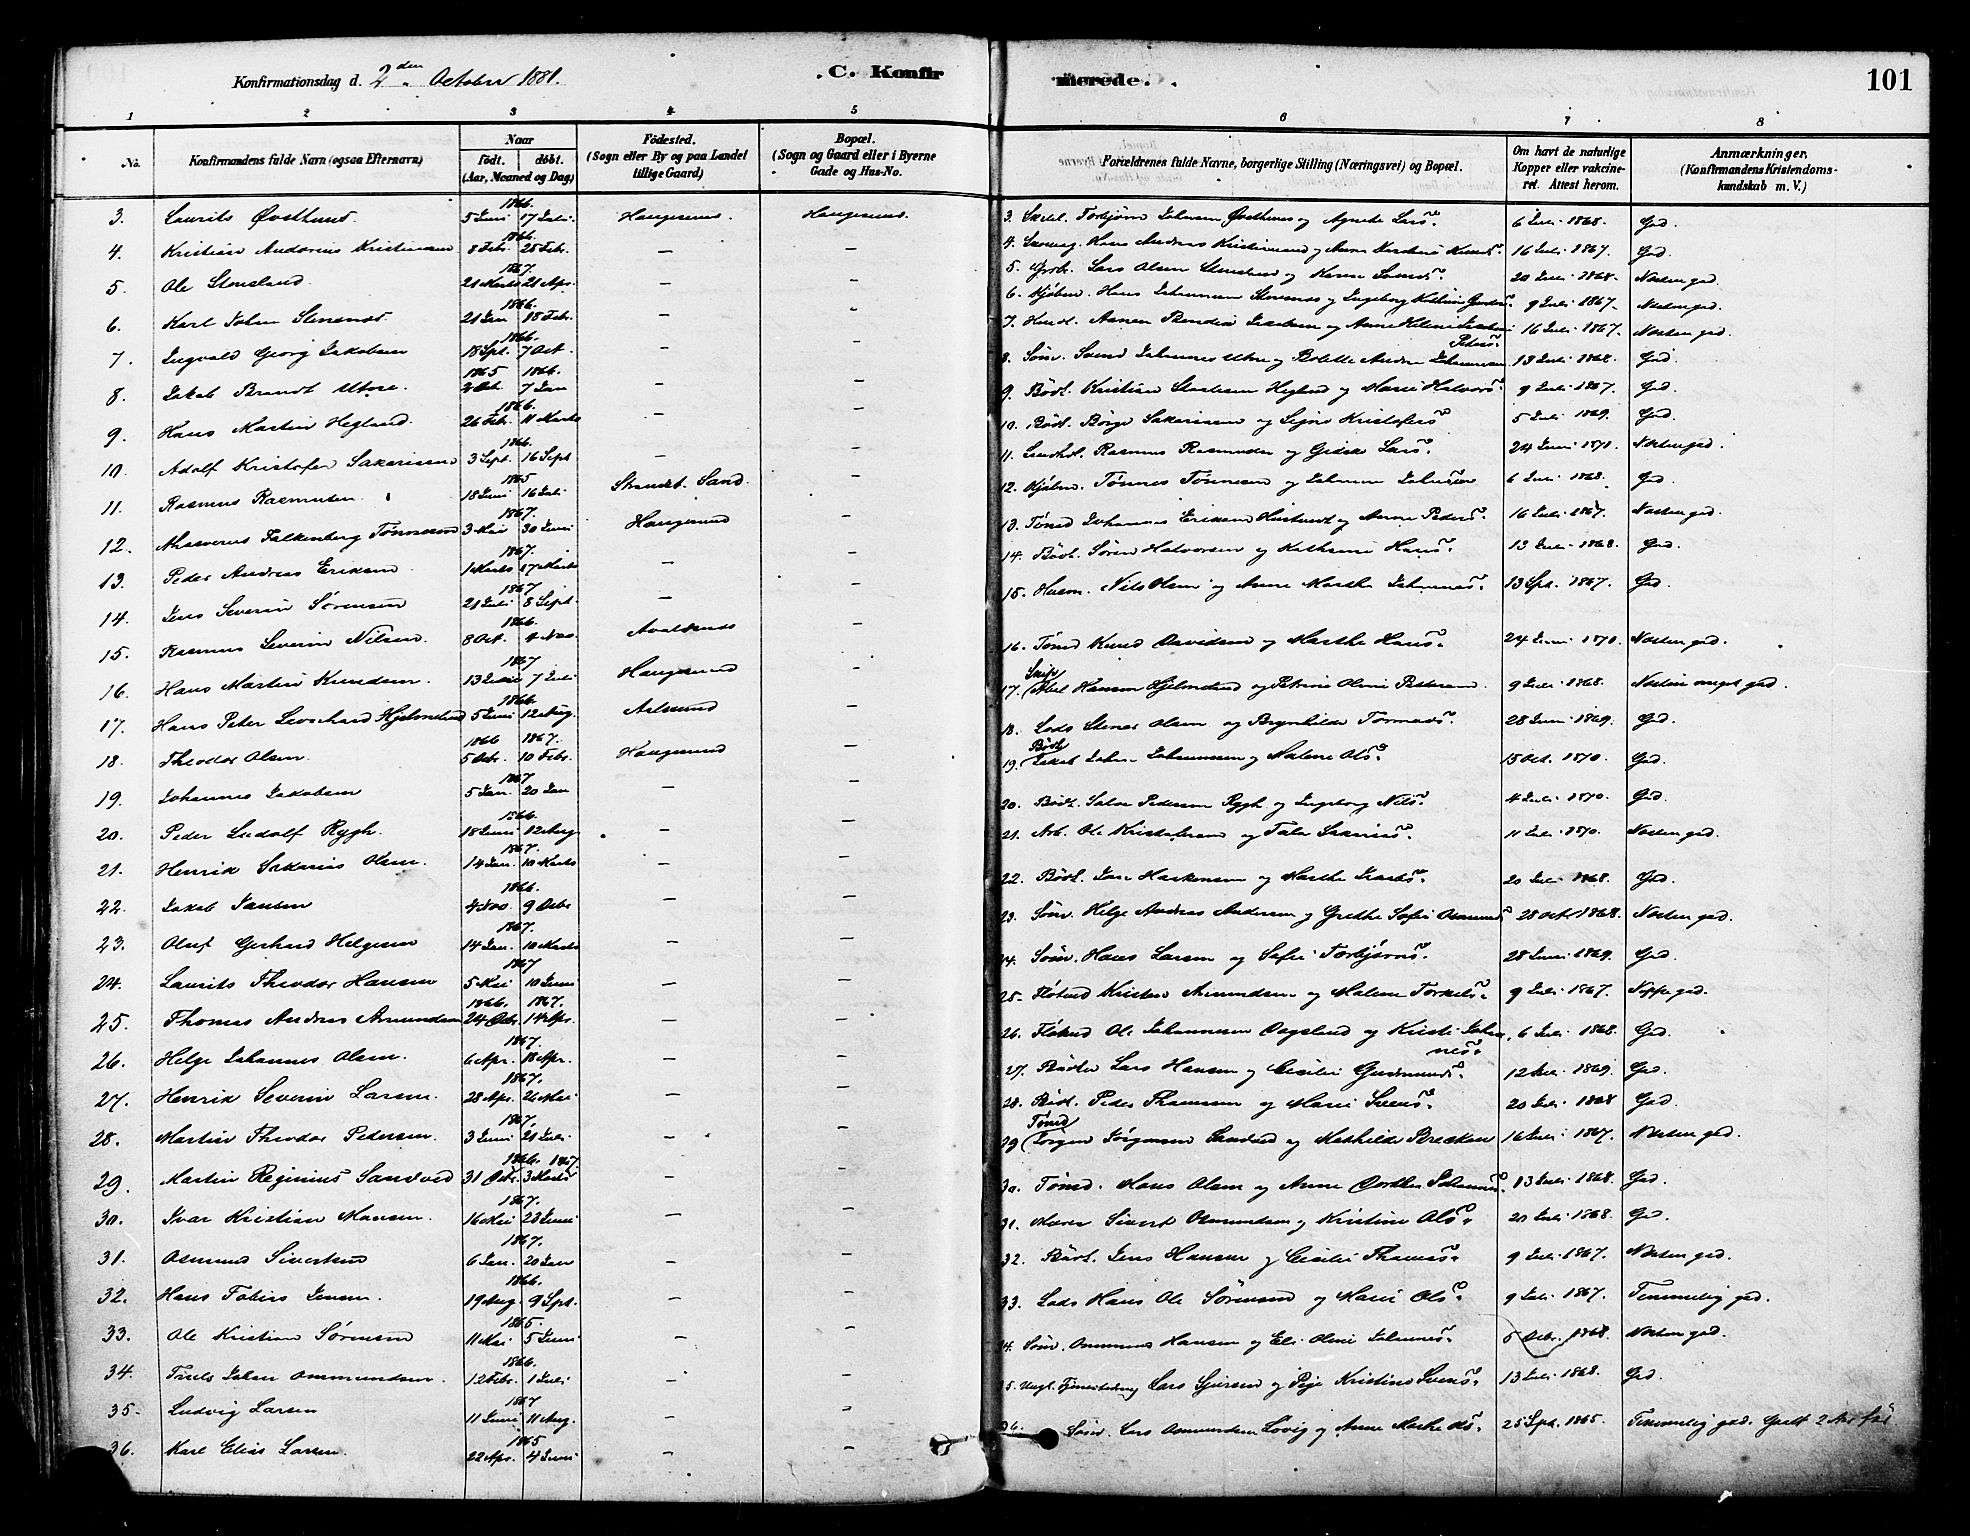 Konfirmationsdag d. 2den October 1881.
C. Konfirmerede.
101
1 2 3 4 5 6 7 8
No.
Konfirmandens fulde Navn (ogsaa Efternavn)
Naar
Födt. döbt.
(Aar, Maaned og Dag)
Födested.
(Sogn eller By og paa Landet tillige Gaard)
Bopæl.
(Sogn og Gaard eller i Byerne Gade og Hus-No.
Forældrenes fulde Navne, borgerlige Stilling (Næringsvei) og Bopæl.
Om havt de naturlige Kopper eller vakcineret. Attest herom.
Anmærkninger.
(Konfirmandens Kristendomskundskab m. V.)
3. Laurits Østhuus 1866. 5 Juni 17 Juli Haugesund. Haugesund. 3. Torbjørn Johansen Østhuus og Agnete Larsd. 6 Juli 1868. God.
4. Kristian Andreas Kristiansen 1866. 8 Febr. 25 Febr. — — 4. Hans Andreas Kristiansen og Anne 16 Juli 1867. God
5. Ole Stensland 1867. 21 Marts 21 Apr. — — 5. Lars Olsen Stensland og 20 Juli 1868. Næsten god.
6. Karl Johan Stensnæs 1866. 21 Jan 18 Febr. — — 6. Kjøbm. Hans Johannesen Stensnæs og Ingeborg 9 Juli 1867. Næsten god.
7. Ingvald Georg Jakobsen 1866. 18 Spt. 7 Oct. — — 7. 16 Juli 1867. Næsten god.
8. Jakob Brandt Utne. 1865 1866. 2 Oct 7 Jan — — 8. Søm. Svend Johannes Utne og Bolette Andrea Johannesen 13 Juli 1868. God
9. Hans Martin Hegland. 1866. 26 Febr. 11 Marts — — 9. Bødk. Kristian Hegland og Marie Halvorsd. 9 Juli 1867. God.
10. Adolf Kristofer Sakariasen 1866. 3 Sept. 16 Sept — — 10. Bødk. Børge Sakariasen og Kristofersd 5 Juli 1869. God.
11. Rasmus Rasmussen. 1865 18 Juni 16 Juli Strandst. Sand. — 11. Rasmus Rasmussen og Larsd. 24 Juni 1871. Næsten god.
12. Falkenberg Tønnesen 1867. 3 Mai 30 Juni Haugesund — 12. Kjøbm. Tønnes Tønnesen og 6 Juli 1868. God.
13. Peder Andreas Eriksen 1867. 1 Marts 17 Marts — — 13. Tømd. Johannes Eriksen og Anne Pedersd. 16 Juli 1867. Næsten god.
14. Jens Severin Sørensen 1867 21 Juli 8 Sept. — — 14. Bødk. Søren Halvorsen og Kathrine Hansd. 13 Juli 1868. God.
15. Rasmus Severin Nilsen. 1866. 8 Oct. 4 Nov. Avaldsnes — 15. Husm. Nils Olsen og Anne Marthe Johannesd. 13 Spt. 1867. God.
16. Hans Martin Knudsen. 1867 13 Juni 7 Juli Haugesund — 16. Tømd Knud Davidsen og Marthe Hansd. 24 Juni 1870. Næsten god.
17. Hans Peter Hjelmeland 1866. 5 Juni 12 Aug. Aalesund — 17. Hansen Hjelmeland og Petrine Oline Pettersen. 9 Juli 1868. Næsten meget god.
18. Theodor Olsen. 1866 1867. 5 Decbr. 10 Febr. Haugesund — 18. Lods Stener Olsen og Brynhilde Tormodsd. 28 Juni 1869. God.
19. Johannes Jakobsen 1867 5 Jan. 20 Jan — — 19. Jakob Johan Johannesen og Malene Olsd. 15 Oct. 1870. God.
20. Peder Ludolf Rygh. 1866. 18 Juni 12 Aug. — — 20. Bødk. Salve Pedersen Rygh og Ingeborg Nilsd. 4 Juli 1870. God.
21. Henrik Sakarias Olsen. 1867. 14 Jan. 10 Marts — — 21. Arb. Ole Kristofersen og Tale 11 Juli 1870. Næsten god.
22. Jakob Jansen 1866. 4 Nov. 9 Decbr — — 22. Bødk. Haakonsen og Marthe 20 Juli 1868. God.
23. Oluf Gerhard Helgesen 1867. 14 Jan. 10 Marts — — 23. Søm. Helge Andreas Andersen og Grethe Sofie Osmundsd 28 Oct. 1868. Næsten god.
24. Laurits Theodor Hansen 1867 5 Mai 10 Juni — — 24. Søm. Hans Larsen og Sofie Torbjørnsd. 28 Juni 1869. God.
25. Thomas Andreas Amundsen 1866. 1867. 24 Decbr. 14 Apr. — — 25. Kristen Amundsen og Malene Torkelsd. 9 Juli 1867. Neppe god.
26. Helge Johannes Olsen. 1867. 6 Apr. 18 Apr. — — 26. Ole Johannesen Dagsland og Kristi Johannesd. 6 Juli 1868. God
27. Henrik Severin Larsen. 1867. 28 Apr. 26 Mai — — 27. Bødker Lars Hansen og Cecilie Gudmundsd. 12 1869. God.
28. Martin Theodor Pedersen. 1867. 3 Juni 21 Juli. — — 28. Bødk. Peder Thomsen og Marie Svensd. 20 Juli 1868 God.
29. Martin Reginius Sandved 1866. 1867 31 Octbr. 3 Marts — — 29 Tømd Jørgen Jørgensen Sandved og Mathilde 16 Juli 1867. Næsten god.
30. Ivar Kristian Hansen. 1867. 16 Mai 23 Juni — — 30. Tømd. Hans Olsen og Anne Dorthea Johannesd. 13 Juli 1868. God.
31. Osmund Sivertsen 1867. 6 Jan. 20 Jan — — 31. Murer Sivert Osmundsen og Kristine Olsd. 20 Juli 1868. God.
32. Hans Tobias Jensen. 1866. 19 Aug. 9 Spt. — — 32. Bødk. Jens Hansen og Cecilie Thomasd. 9 Juli 1867. Næsten god.
33. Ole Kristian Sørensen 1865. 11 Mai 5 Juni — — 33. Lods Hans Ole Sørensen og Marie Olsd. 9 Juli 1867. Temmelig god.
34. Johan Ommundsen. 1866. 12 Febr. 1 Juli — — 34. Søm. Ommund Hansen og Eli Oline Johannesd. 5 Decbr. 1868. Næsten god.
35. Ludvig Larsen 1867 11 Juni 11 Aug. — — 35. Lars Sjursen og Kristine Svensd. 13 Juli 1868. God.
36. Karl Elias Larsen. 1865 22 Apr. 4 Juni — — 36. Søm. Lars Ommundsen Lovig og Anne Marthe Olsd. 25 Spt. 1865. Temmelig god. Gaaet 2 Aar før